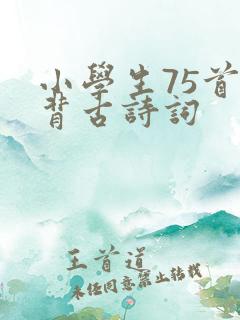 小學生75首
背古詩詞
王首道
未經同意禁止轉載